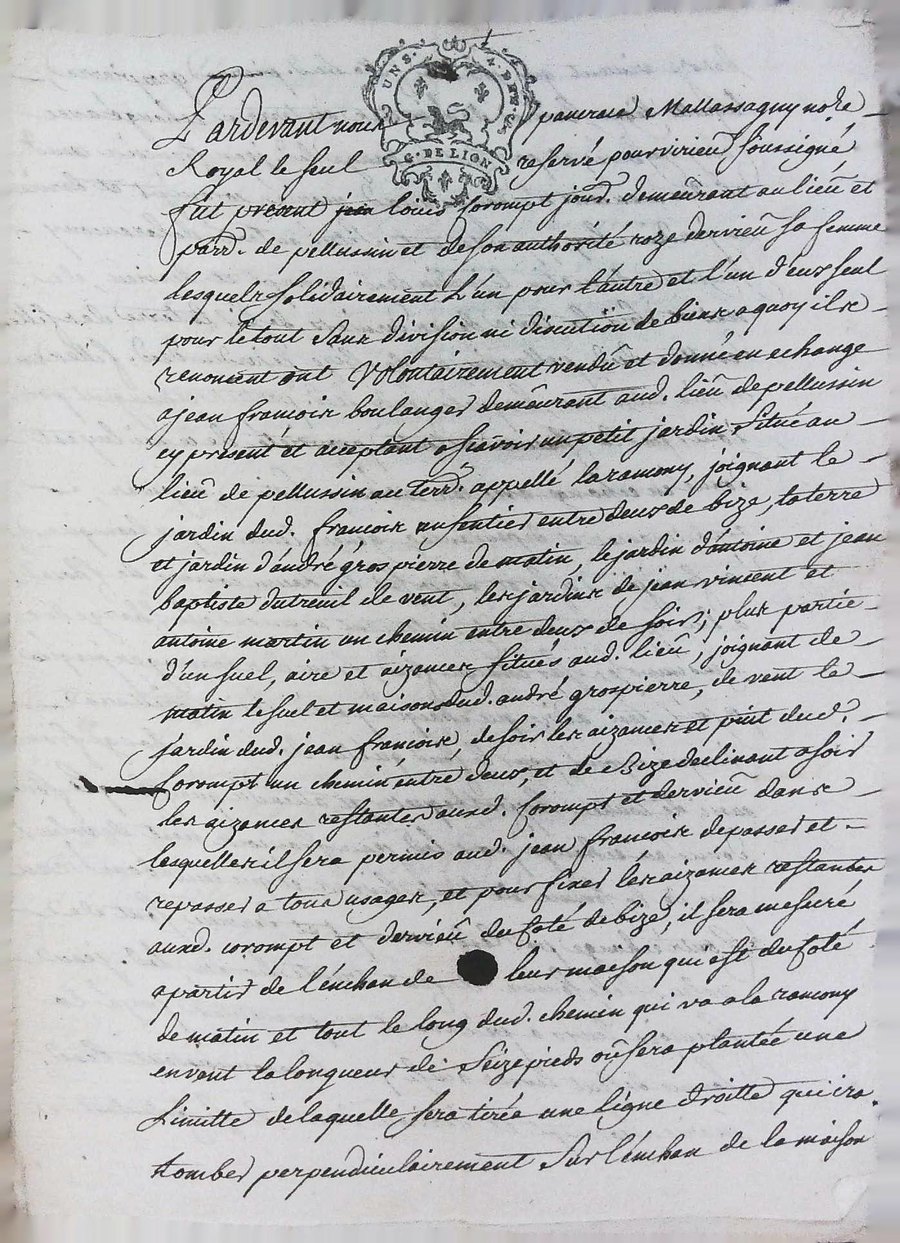 UNS. 4. DEN. UX
G. DE LION
Pardevant nous pancrace Mallassagny no.re
Royal le seul reservé pour virieu soussigné
fut present jean louis Corompt jour.d demeurant au lieû et
parr. de pellussin et de son authorité roze dervieû sa femme
lesquels solidairement l'un pour l'autre et l'un d'eux seul
pour le tout sans division ni discution de biens a quoy ils
renoncent ont volontairement vendû et donné en echange
a jean françois boulanger demeurant aud. lieû de pellussin
cy present et aceptant asçavoir un petit jardin situé au
lieû de pellussin au terr. appellé la ramony, joignant le
jardin dud. françois un sentier entre deux de bize, la terre
et jardin d'andré grospierre de matin, le jardin d'antoine et jean
baptiste dutreuil de vent, les jardins de jean vincent et
antoine martin un chemin entre deux de soir; plus partie
d'un suel, aire et aizances situés aud. lieû, joignant de
matin le suel et maison dud. andré grospierre, de vent le
jardin dud. jean françois, de soir les aizances et puit dud.
Corompt un chemin entre deux, et de Bize declinant a soir
les aizances restantes auxd. Corompt et dervieû dans
lesquelles il sera permis aud. jean françois de passer et
repasser a tous usages, et pour fixer les aizances restantes
auxd. corompt et dervieû du coté de bize, il sera mesuré
a partir de l'enchan de leur maison qui est du coté
de matin et tout le long dud. chemin qui va a la ramony
en vent la longueur de seize pieds où sera plantée une
Limitte de laquelle sera tirée une ligne droitte qui ira
tomber perpendiculairement sur l'enchan de la maison